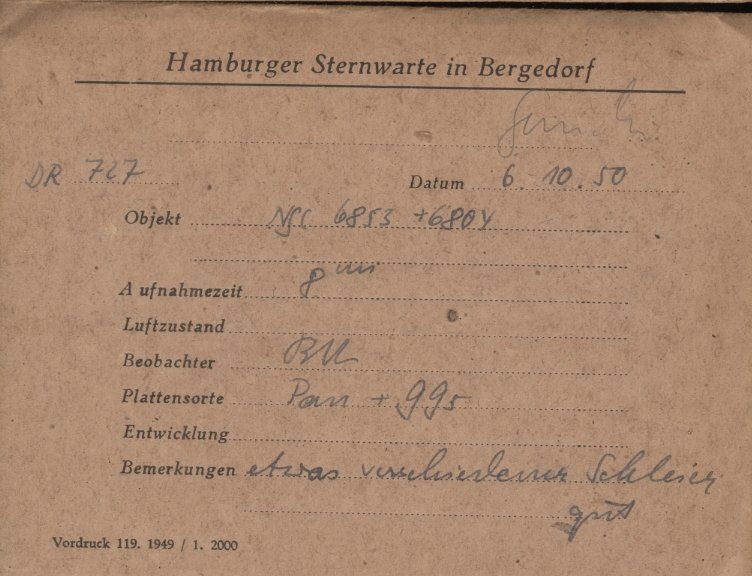 Hamburger Sternwarte in Bergedorf
DR 727
Datum 6. 10. 50
Objekt NGC 6853 + 6804
Aufnahmezeit 8 m
Luftzustand
Beobachter
Plattensorte Pan + gg5
Entwicklung
Bemerkungen etwas verschiedener Schleier
gut
Vordruck 119. 1949 / 1. 2000